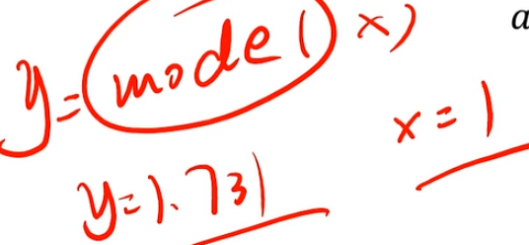 y=model(x)
a
x=1
y=1.731